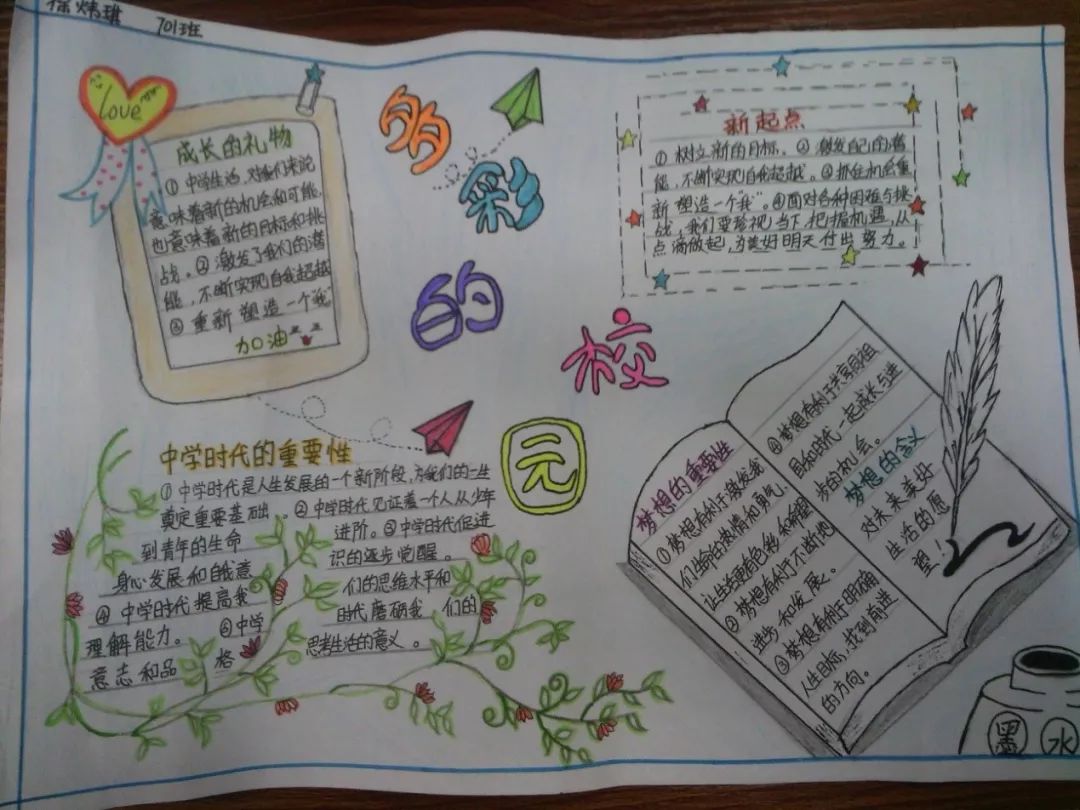 徐炜琪 701班
love
多彩的校元
成长的礼物
①中学生活,对我们来说
意味着新的机会和可能,
也意味着新的目标和挑
战。②激发了我们的潜
能,不断实现自我超越
③重新“塑造一个“我”
加油
新起点
①树立新的目标。②激发自己的潜
能,不断实现自我超越。③抓住机会重
新“塑造一个“我”。④面对各种困难与挑
战,我们要珍视当下,把握机遇,从
点滴做起,为美好明天付出努力。
中学时代的重要性
①中学时代是人生发展的一个新阶段,为我们的一生
奠定重要基础。②中学时代见证着一个人从少年
到青年的生命 进阶。③中学时代促进
身心发展和自我意 识的逐步觉醒。
④中学时代提高我 们的思维水平和
理解能力。 ⑤中学 时代磨砺我们的
意志和品 格 思考生活的意义。
梦想的重要性
①梦想有利于激发我
们生命的热情和勇气,
让生活更有色彩和希望
②梦想有利于不断地
进步和发展。
③梦想有利于明确
人生目标,找到前进
的方向。
④梦想有利于共享同祖
国和时代一起成长与进
步的机会。
梦想的含义
对未来美好
生活的愿
望
墨水